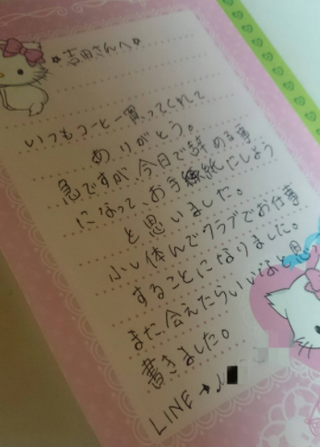 ☆吉田さんへ☆
いつもコーヒー買ってくれて
ありがとう。
急ですが、今日で辞める事
になって、お手紙にしよう
と思いました。
少し休んでクラブでお仕事
することになりました。
また会えたらいいなと思い
書きました。
LINE→